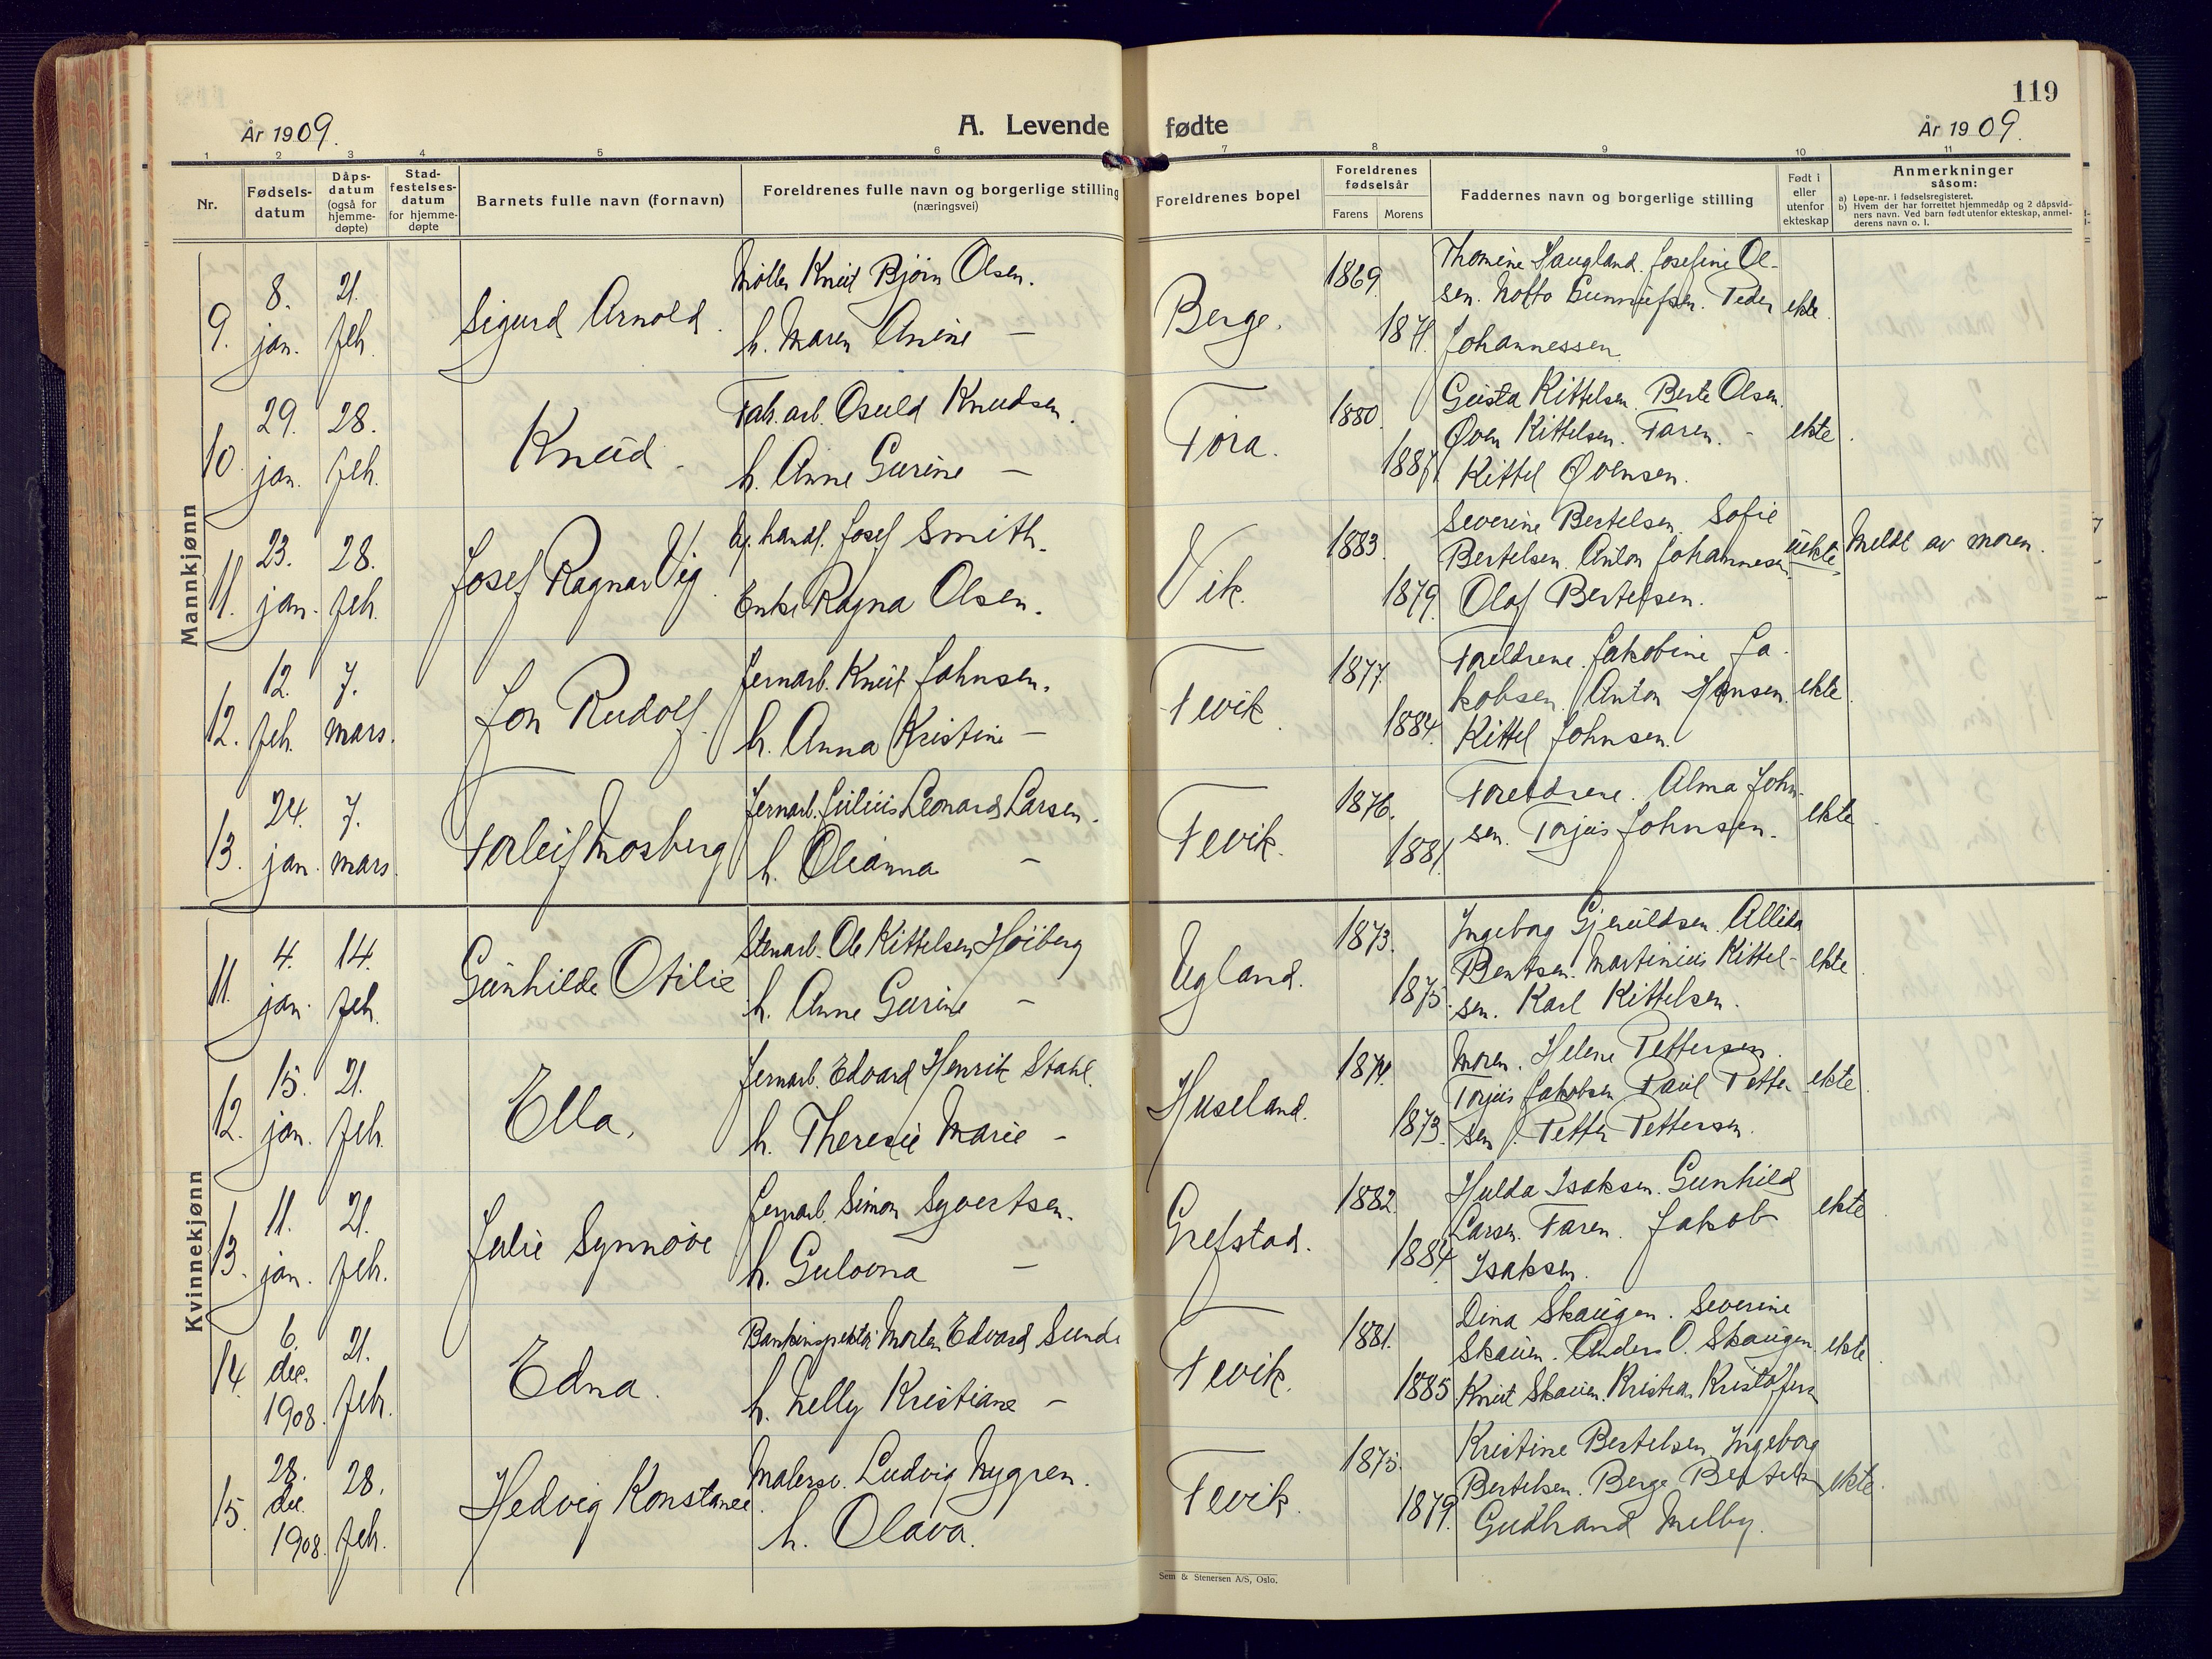 119
År 1909.
A. Levende fødte
År 1909.
1 2 3 4 5 6 7 8 9 10 11
Nr.
Fødsels-
datum
Dåps-
datum
(også for
hjemme-
døpte)
Stad-
festelses-
datum
for hjemme-
døpte
Barnets fulle navn (fornavn)
Foreldrenes fulle navn og borgerlige stilling
(næringsvei)
Foreldrenes bopel
Foreldrenes
fødselsår
Farens
Morens
Faddernes navn og borgerlige stilling
Født i
eller
utenfor
ekteskap
Anmerkninger
såsom:
a) Løpe-nr. i fødselsregisteret.
b) Hvem der har forrettet hjemmedåp og 2 dåpsvid-
ners navn. Ved barn født utenfor ekteskap, anmel-
derens navn o. l.
Mannkjønn
9.
8.
jan.
21.
feb.
Sigurd Arnold.
Møller Knut Bjørn Olsen.
h. Maren Anine —
Berge.
1869.
1871.
Thomine Haugland. Josefine Ol-
sen. Notto Gunnufsen. Peder
Johannessen.
ekte.
10.
29.
jan.
28.
feb.
Knud.
Fab. arb. Osuld Knudsen.
h. Anne Gurine —
Fora.
1880.
Gusta Kittelsen. Berte Olsen.
Øven Kittelsen. Faren. -
Kittel Øvensen.
ekte.
11.
23.
jan.
28.
feb.
Josef Ragnar Vig.
handl. Josef Smith.
Enke Ragna Olsen.
Vik.
1883.
1879.
Severine Bertelsen. Sofie
Bertelsen. Anton Johannesen.
Olaf Bertelsen.
uekte.
Meldt av moren.
12.
12.
feb.
7.
mars.
Jon Rudolf.
Jernarb. Knut Johnsen.
h. Anna Kristine —
Fevik.
1877.
1884.
Foreldrene. Jakobine Ja-
kobsen. Anton Hansen.
Kittel Johnsen.
ekte.
13.
24.
jan.
7.
mars.
Torleif Mosberg
Jernarb. Julius Leonard Larsen.
h. Olianna —
Fevik.
1876.
1881.
Foreldrene. Alma John-
sen. Torjus Johnsen.
ekte.
Kvinnekjønn
11.
4.
jan.
14.
feb.
Gunhilde Otilie
Stenarb. Ole Kittelsen Høiberg
h. Anne Gurine —
Ugland.
1873.
1875.
Ingeborg Gjeruldsen. Allida
Bentsen. Martinius Kittel-
sen. Karl Kittelsen.
ekte.
12.
15.
jan.
21.
feb.
Ella.
Jernarb. Edvard Henrik Stahl.
h. Theresie Marie —
Huseland.
1874.
1873.
Moren. Helene Pettersen.
Torjus Jakobsen. Paul Petter-
sen. Petter Pettersen.
ekte.
13.
11.
jan.
21.
feb.
Julie Synnøve
Jernarb. Simon Syvertsen.
h. Gulovna —
Grefstad.
1882.
1884.
Hulda Isaksen. Gunhild
Larsen. Faren. Jakob
Isaksen.
ekte.
14.
6.
dec.
1908.
21.
febr.
Edna.
Bankinspektør Morten Edvard Sunde
h. Nelly Kristiane —
Fevik.
1881.
1885
Dina Skaugen. Severine
Skauen. Anders O. Skaugen.
Knut Skauen. Kristian Kristoffers
ekte.
15.
28.
dec.
1908.
28.
feb.
Hedvig Konstance.
Malersv. Ludvig Nygren.
h. Olava.
Fevik.
1875.
1879.
Kristine Bertelsen. Ingeborg
Bertelsen. Berge Bertelsen
Gudbrand Melby.
ekte.
Sem & Stenersen A/S, Oslo.